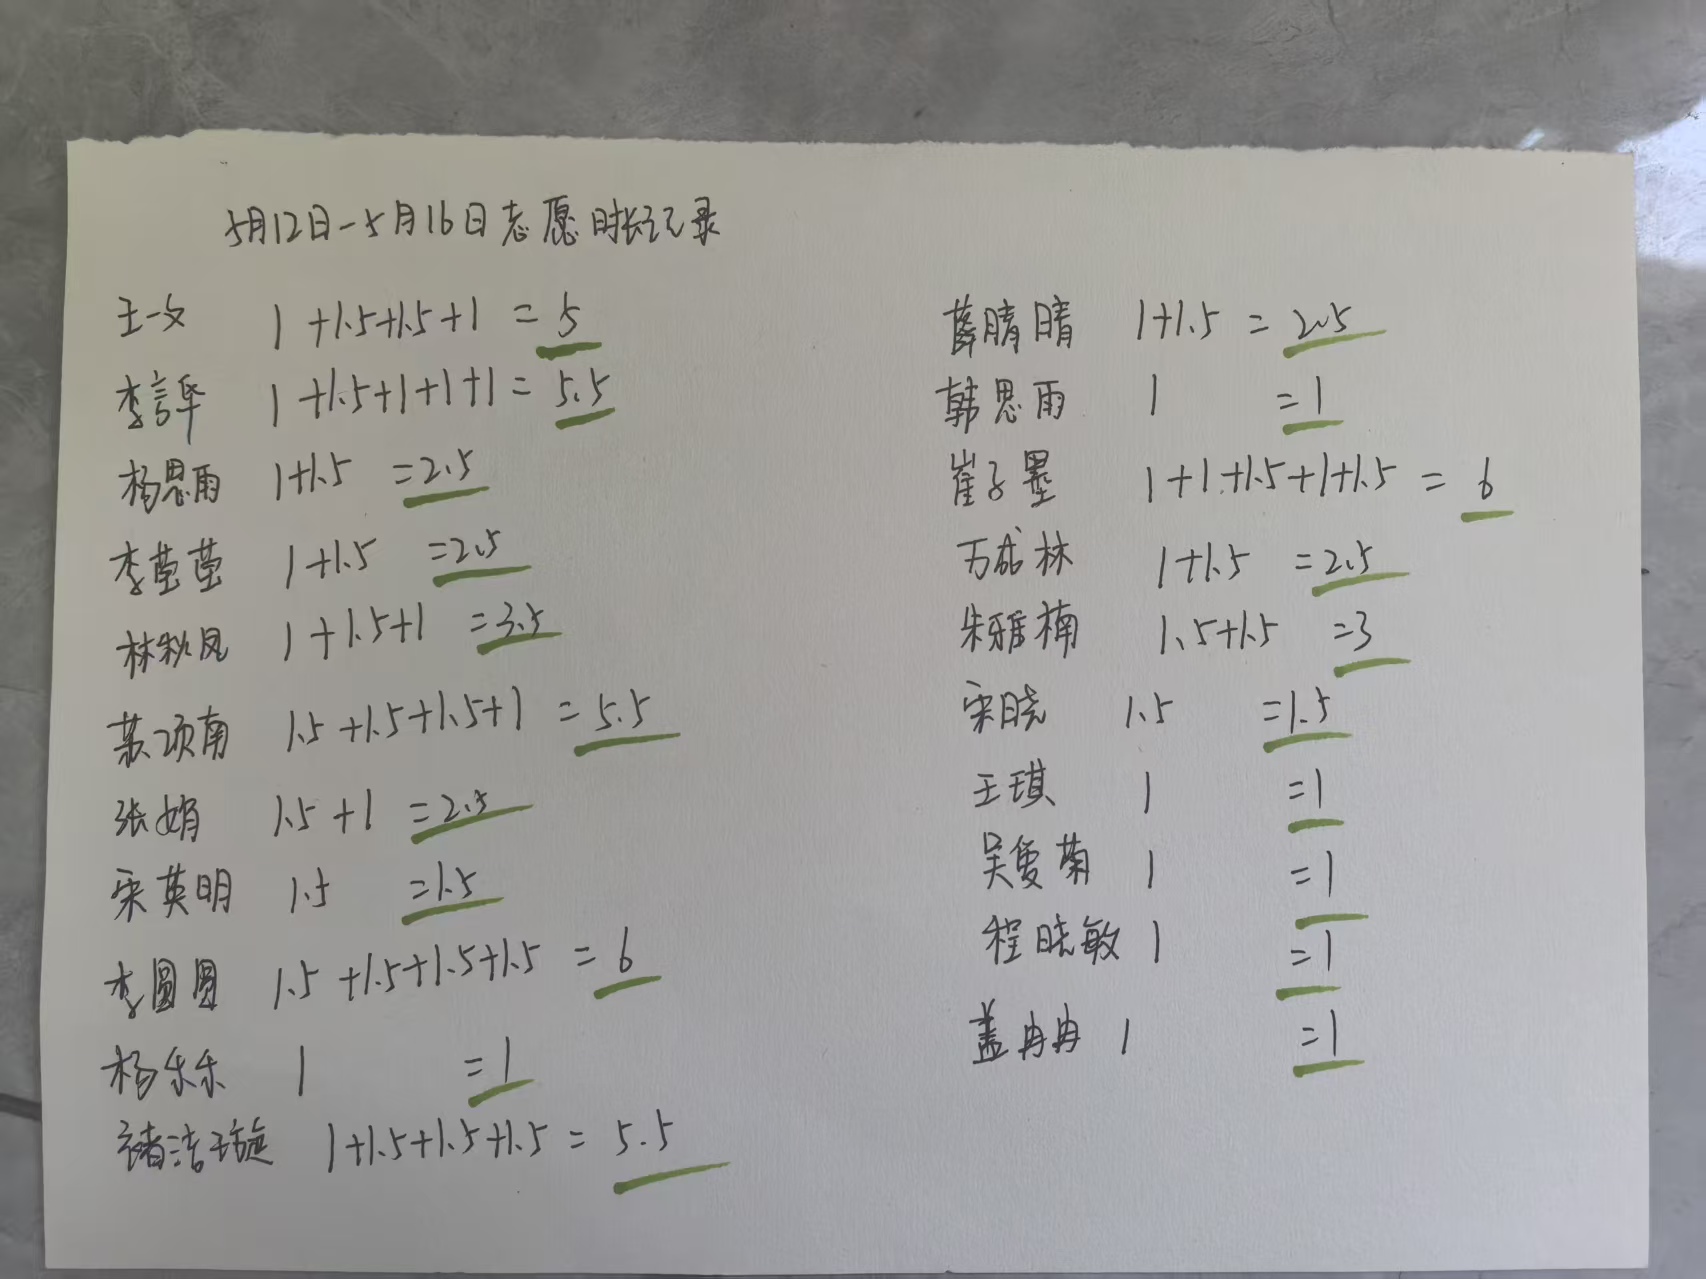 5月12日-5月16日志愿时长记录
王一文 1+1.5+1.5+1=5
李言华 1+1.5+1+1+1=5.5
杨思雨 1+1.5=2.5
李莹莹 1+1.5=2.5
林秋凤 1+1.5+1=3.5
苏项南 1.5+1.5+1.5+1=5.5
张娟 1.5+1=2.5
宋英明 1.5=1.5
李圆圆 1.5+1.5+1.5+1.5=6
杨乐乐 1=1
褚洁璇 1+1.5+1.5+1.5=5.5
薛晴晴 1+1.5=2.5
韩思雨 1=1
崔子墨 1+1+1.5+1+1.5=6
万林 1+1.5=2.5
朱雅楠 1.5+1.5=3
宋晓 1.5=1.5
王琪 1=1
吴菊 1=1
程晓敏 1=1
盖冉冉 1=1